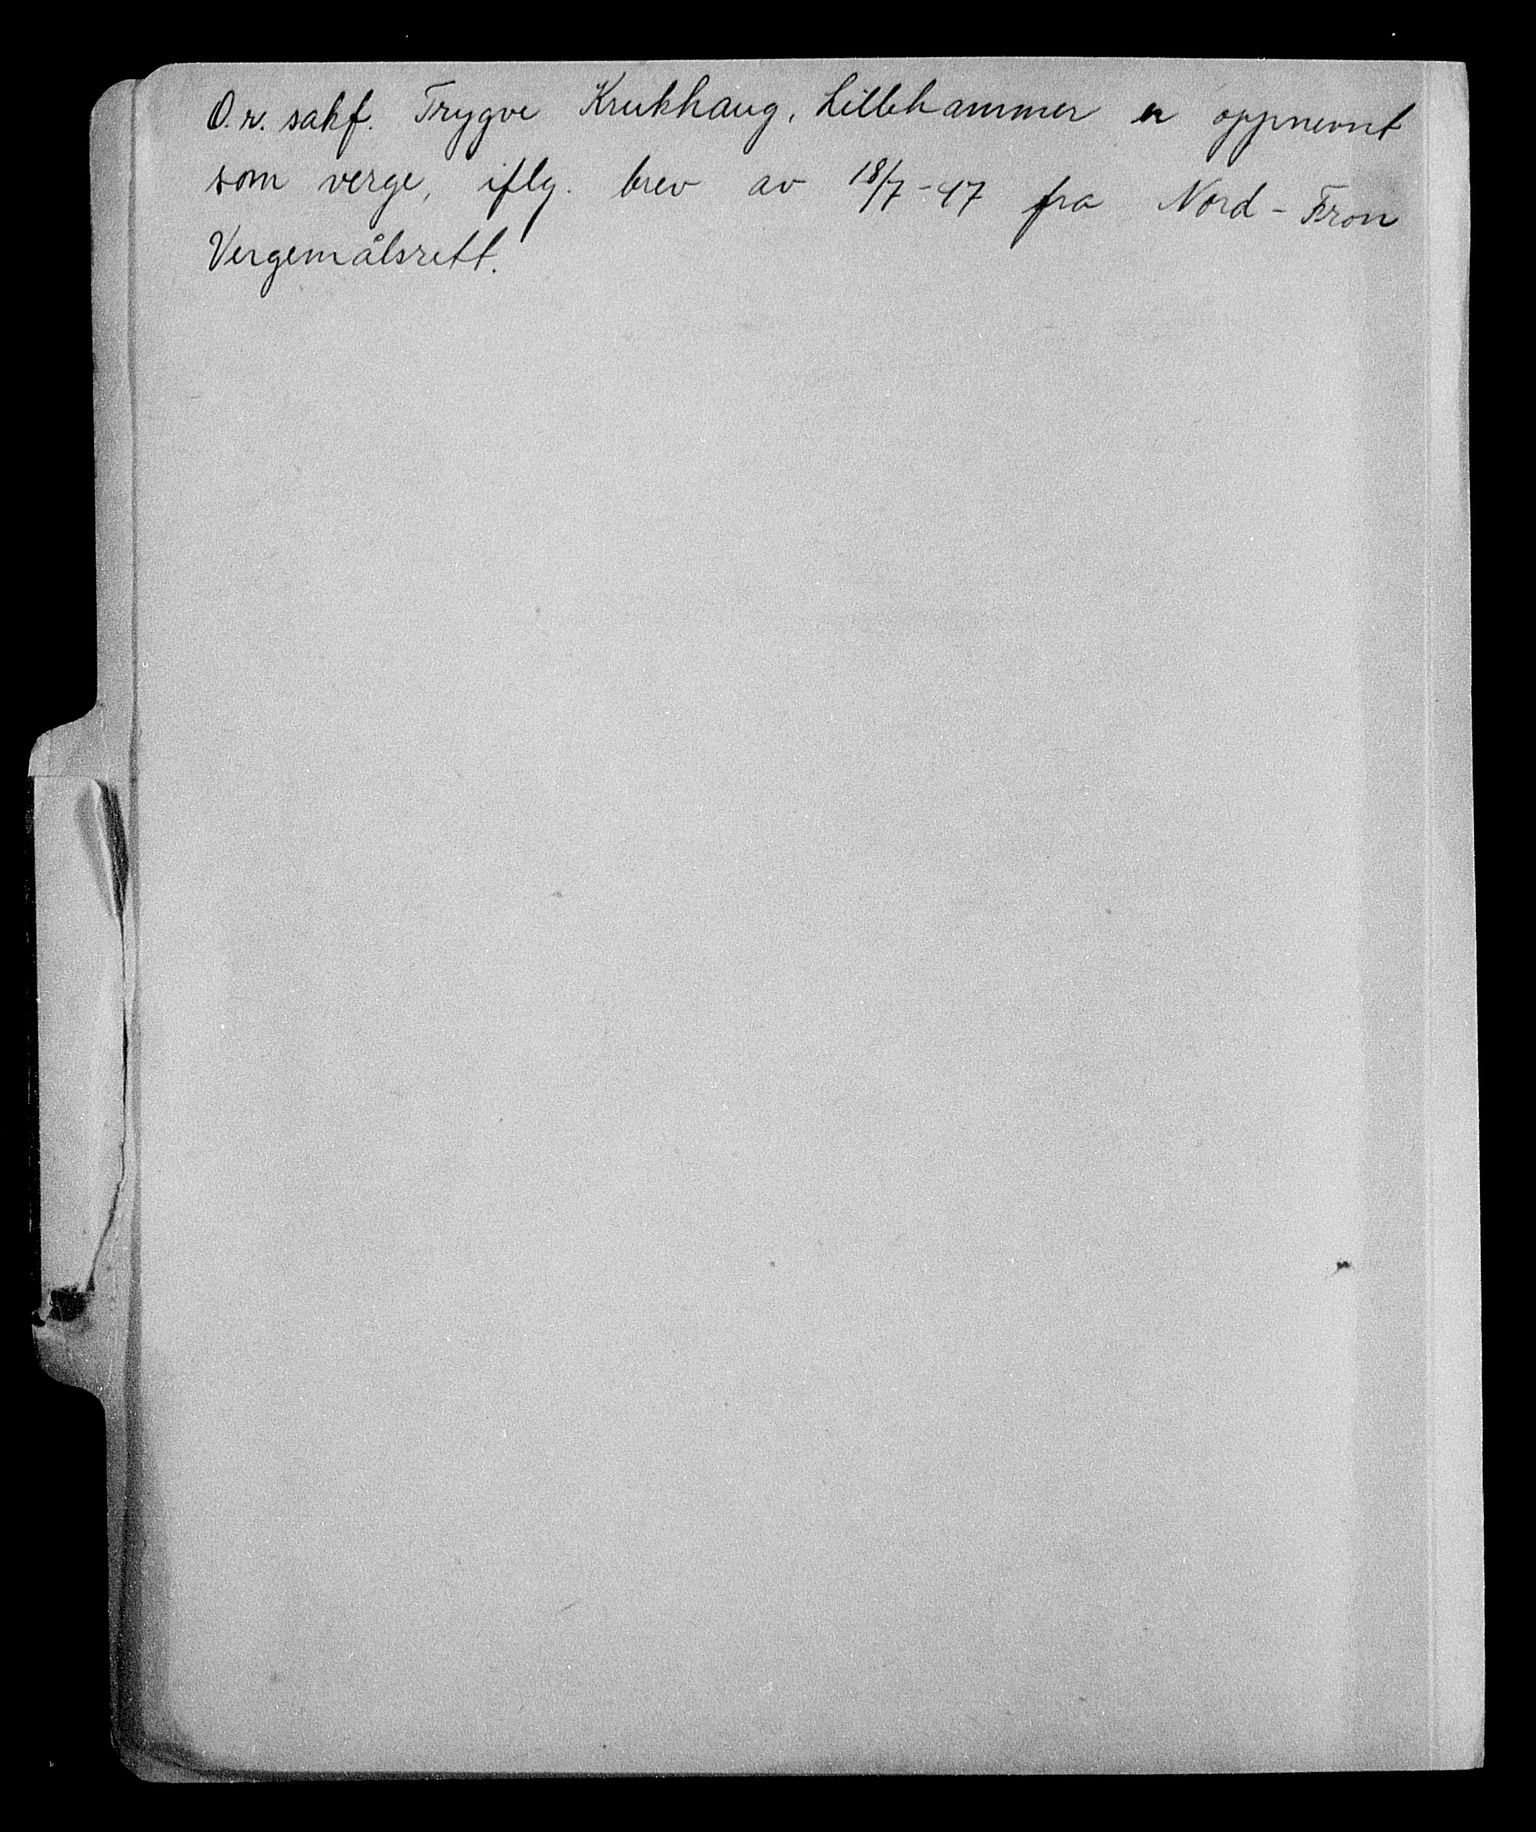 O.r. sakf. Trygve Krukhaug, Lillehammer er oppnevnt
som verge, iflg. brev av 18/7-47 fra Nord-Fron
Vergemålsrett.